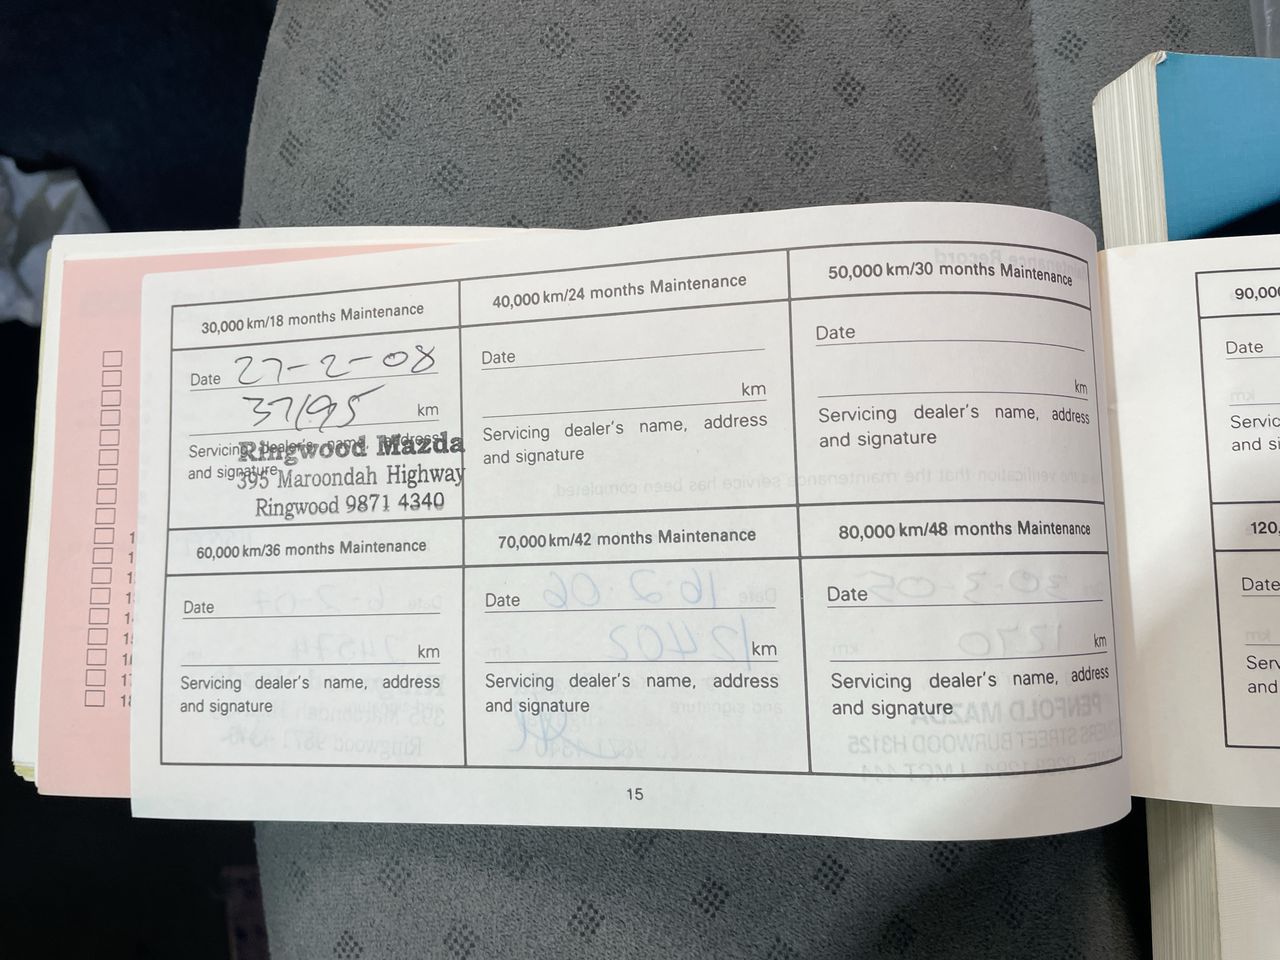 30,000 km/18 months Maintenance
Date 27-2-08
37195 km
Servicing dealer's name, address
and signature
Ringwood Mazda
395 Maroondah Highway
Ringwood 9871 4340
40,000 km/24 months Maintenance
Date
km
Servicing dealer's name, address
and signature
50,000 km/30 months Maintenance
Date
km
Servicing dealer's name, address
and signature
60,000 km/36 months Maintenance
Date
km
Servicing dealer's name, address
and signature
70,000 km/42 months Maintenance
Date
km
Servicing dealer's name, address
and signature
80,000 km/48 months Maintenance
Date
km
Servicing dealer's name, address
and signature
15
Date
and
Date
and